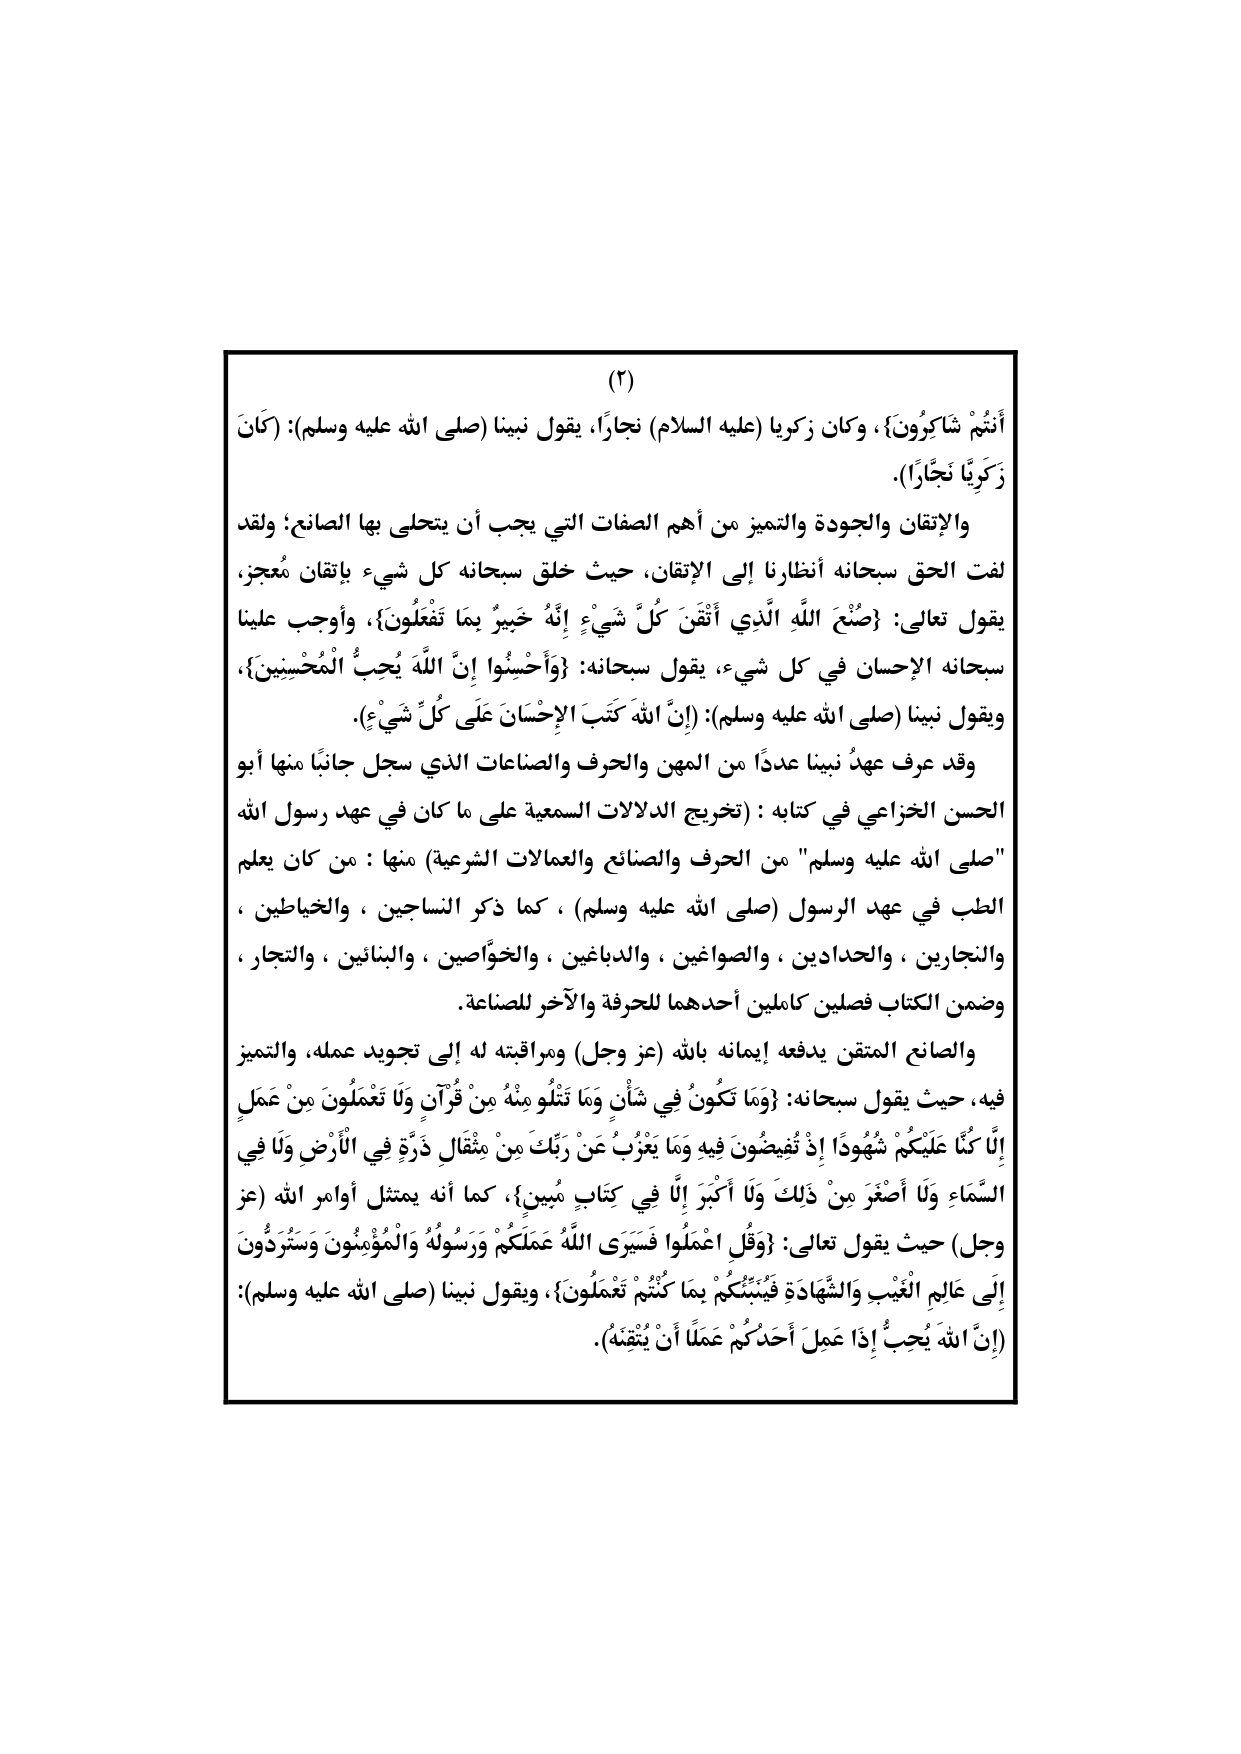 (٢)
أَنتُمْ شَاكِرُونَ}، وكان زكريا (عليه السلام) نجارًا، يقول نبينا (صلى الله عليه وسلم): (كَانَ
زَكَرِيَّا نَجَّارًا).
والإتقان والجودة والتميز من أهم الصفات التي يجب أن يتحلى بها الصانع؛ ولقد
لفت الحق سبحانه أنظارنا إلى الإتقان، حيث خلق سبحانه كل شيء بإتقان مُعجز،
يقول تعالى: {صُنْعَ اللَّهِ الَّذِي أَتْقَنَ كُلَّ شَيْءٍ إِنَّهُ خَبِيرٌ بِمَا تَفْعَلُونَ}، وأوجب علينا
سبحانه الإحسان في كل شيء، يقول سبحانه: {وَأَحْسِنُوا إِنَّ اللَّهَ يُحِبُّ الْمُحْسِنِينَ}،
ويقول نبينا (صلى الله عليه وسلم): (إِنَّ اللهَ كَتَبَ الإِحْسَانَ عَلَى كُلِّ شَيْءٍ).
وقد عرف عهدُ نبينا عددًا من المهن والحرف والصناعات الذي سجل جانبًا منها أبو
الحسن الخزاعي في كتابه : (تخريج الدلالات السمعية على ما كان في عهد رسول الله
"صلى الله عليه وسلم" من الحرف والصنائع والعمالات الشرعية) منها : من كان يعلم
الطب في عهد الرسول (صلى الله عليه وسلم) ، كما ذكر النساجين ، والخياطين ،
والنجارين ، والحدادين ، والصواغين ، والدباغين ، والخوَّاصين ، والبنائين ، والتجار ،
وضمن الكتاب فصلين كاملين أحدهما للحرفة والآخر للصناعة.
والصانع المتقن يدفعه إيمانه بالله (عز وجل) ومراقبته له إلى تجويد عمله، والتميز
فيه، حيث يقول سبحانه: {وَمَا تَكُونُ فِي شَأْنٍ وَمَا تَتْلُو مِنْهُ مِنْ قُرْآنٍ وَلَا تَعْمَلُونَ مِنْ عَمَلٍ
إِلَّا كُنَّا عَلَيْكُمْ شُهُودًا إِذْ تُفِيضُونَ فِيهِ وَمَا يَعْزُبُ عَنْ رَبِّكَ مِنْ مِثْقَالِ ذَرَّةٍ فِي الْأَرْضِ وَلَا فِي
السَّمَاءِ وَلَا أَصْغَرَ مِنْ ذَلِكَ وَلَا أَكْبَرَ إِلَّا فِي كِتَابٍ مُبِينٍ}، كما أنه يمتثل أوامر الله (عز
وجل) حيث يقول تعالى: {وَقُلِ اعْمَلُوا فَسَيَرَى اللَّهُ عَمَلَكُمْ وَرَسُولُهُ وَالْمُؤْمِنُونَ وَسَتُرَدُّونَ
إِلَى عَالِمِ الْغَيْبِ وَالشَّهَادَةِ فَيُنَبِّئُكُمْ بِمَا كُنْتُمْ تَعْمَلُونَ}، ويقول نبينا (صلى الله عليه وسلم):
(إِنَّ اللهَ يُحِبُّ إِذَا عَمِلَ أَحَدُكُمْ عَمَلًا أَنْ يُتْقِنَهُ).